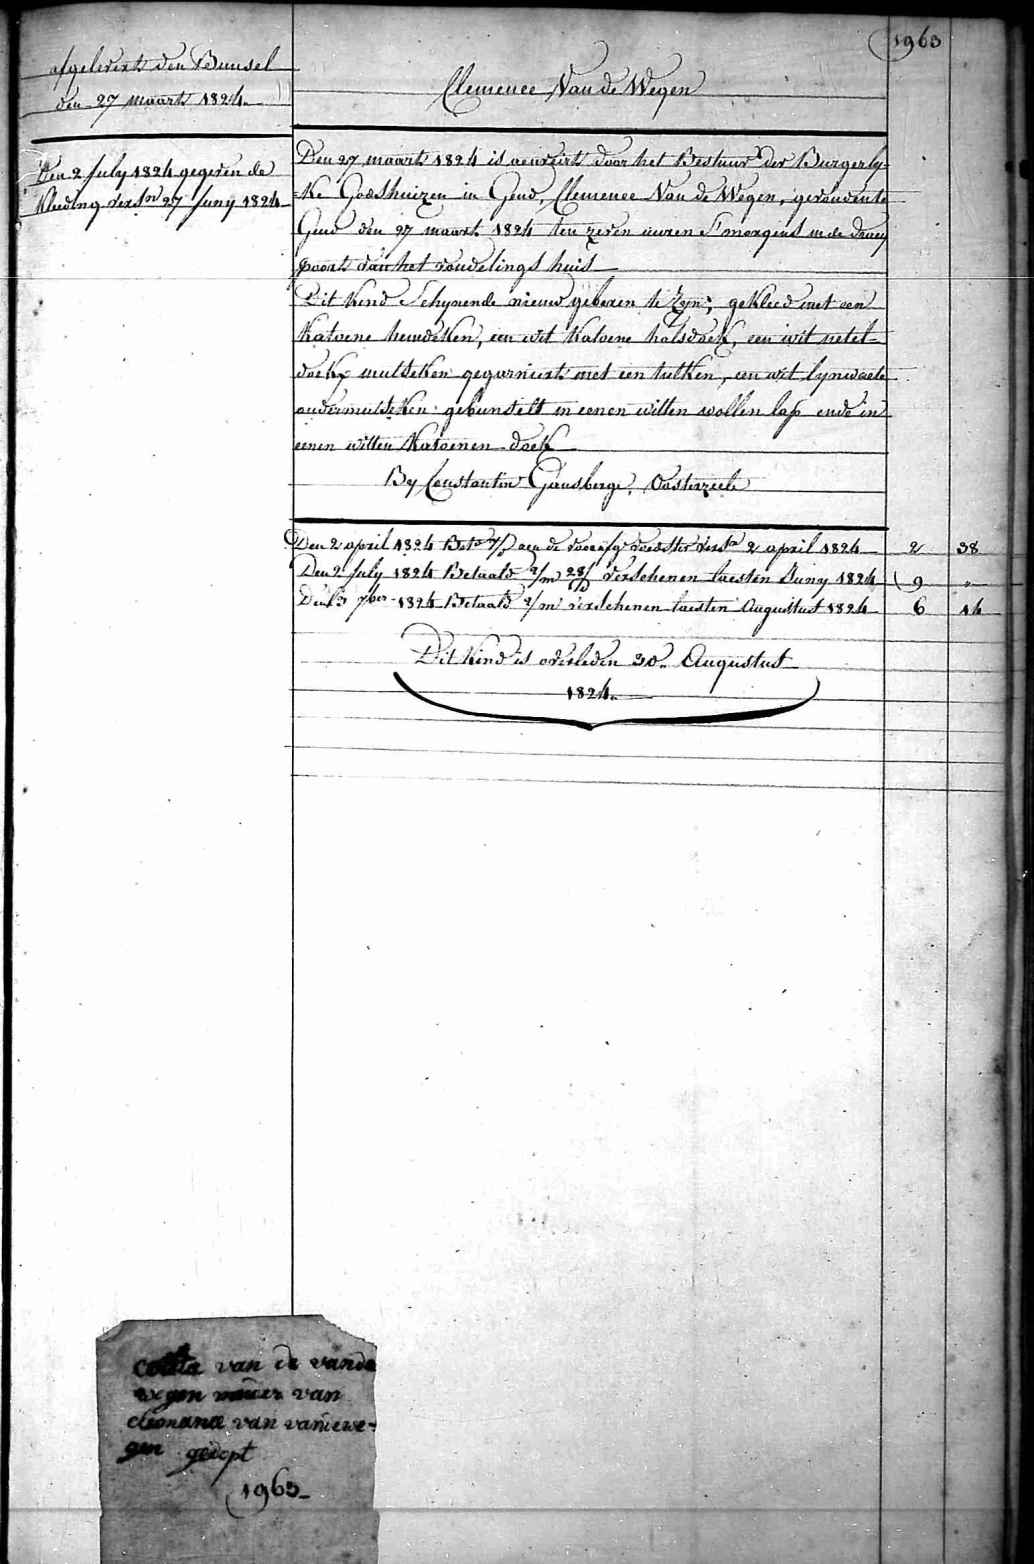 1963
afgelevert den Bunsel
den 27 maart 1824.
Clemence Van de Wegen
Den 2 July 1824 gegeven de
Kleeding versn 27 Juny 1824
Den 27 maart 1824 is aenveirt door het Bestuur der Burgerly-
ke Godshuizen in Gend, Clemence Van de Wegen, gevonden te
Gend den 27 maart 1824 ten zeven uuren S'morgens in de draey
poort van het vondelings huis
Dit kind Schynende nieuw geboren te zyn; gekleed met een
katoene hemdeken, een wit katoene halsdoek, een wit netel-
doekx mutseken gegarniert met een tulken, een wit lynwaete
ondermutseken gebunselt in eenen witten wollen lap ende in
eenen witten katoenen doek
By Constantin Gansberge, Oosterzeele
Den 2 april 1824 aen de voedster versn 2 april 1824 2 38
Den 2 July 1824 Betaald 3/m verschenen laesten Juny 1824 9 "
Den 3 7ber 1824 Betaald 2/m verschenen laesten Augustus 1824 6 14
Dit kind is overleden 30. Augustus
1824.
van de vande
wegen moeder van
clemance van vandewe-
gen gedopt
1963